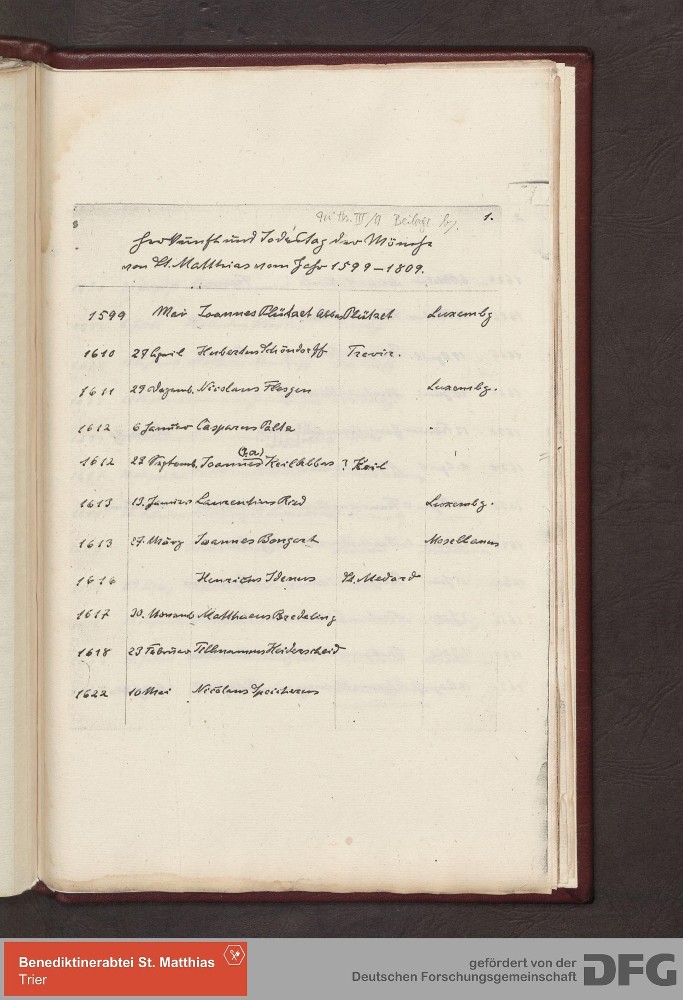 Beilage 1.
Herkunft und Todestag der Mönche
von St. Matthias vom Jahr 1599-1809.
1599 Mai Joannes Plützet Abbas Plützet Luxembg
1610 27 April Hubertus Schöndorff Trevir.
1611 29 Dezemb. Nicolaus Flesgen Luxembg.
1612 6 Januar Casparus Palta
1612 28 Septemb. Joannes Keil Abbas ? Keil
1613 13. Januar Laurentius Ried Luxembg.
1613 27. März Joannes Bongert Mosellanus
1616 Henricus Idenus St. Medard
1617 30. Novemb Matthaeus Bredeling
1618 23 Februar Tillmannus Heiderscheid
1622 10 Mai Nicolaus Speicherus
Benediktinerabtei St. Matthias
Trier
gefördert von der
Deutschen Forschungsgemeinschaft DFG